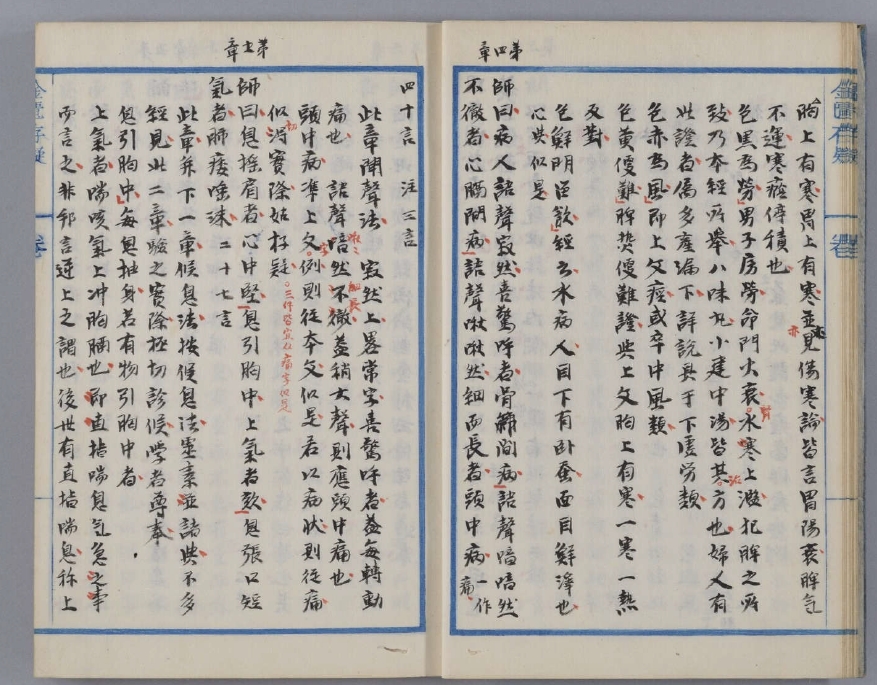 第四章
胸上有寒胃上有寒並見傷寒論皆言胃陽衰脾氣
不運寒癊停積也
色黑為勞男子房勞命門火衰水寒上溢犯脾之所
致乃本經所舉八味丸小建中湯皆其方也婦人有
此證者偏多産漏下詳說具于下虛勞類
色赤為風即上文痙或卒中風類
色黄便難脾熱便難證與上文胸上有寒一寒一熱
反對
色鮮明留飲經云水病人目下有臥蚕面目鮮澤也
心此似是
師曰病人語聲寂然喜驚呼者骨節間病語聲喑喑然
不徹者心膈間病語聲啾啾然細而長者頭中病一作痛
第五章
四十言 注三言
此章聞聲法 寂然上畧常字喜驚呼者蓋每轉動
痛也 語聲喑然不徹蓋稍大聲則應頭中痛也
頭中病準上文例則從本文似是若以病狀則從痛
似得實際姑存疑
師曰息搖肩者心中堅息引胸中上氣者欬息張口短
氣者肺痿唾沫 二十七言
此章并下一章候息法按候息法靈素並諸典不多
經見此二章驗之實際極切診候學者尊奉
息引胸中每息抽身若有物引胸中者
上氣者喘咳氣上冲胸膈也即直指喘息氣急之事
而言之非邪言逆上之謂也後世有直指喘息称上
金匱存疑
卷
金匱存疑
卷